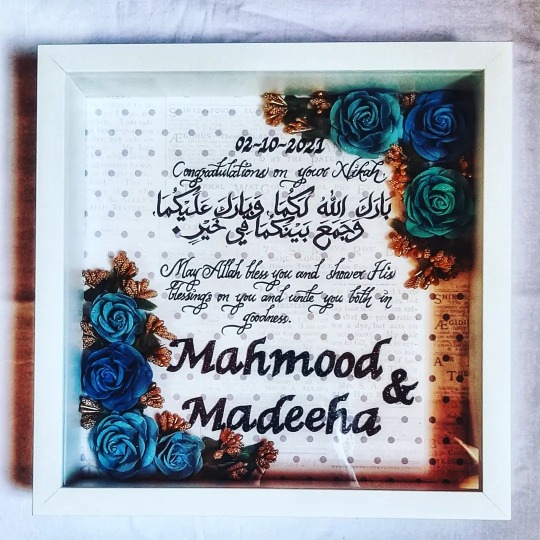 02-10-2021
Congratulations on your Nikah.
بَارَكَ اللهُ لَكُمَا وَبَارَكَ عَلَيْكُمَا
وَجَمَعَ بَيْنَكُمَا فِي خَيْرٍ.
May Allah bless you and shower His
blessings on you and unite you both in
goodness.
Mahmood
&
Madeeha